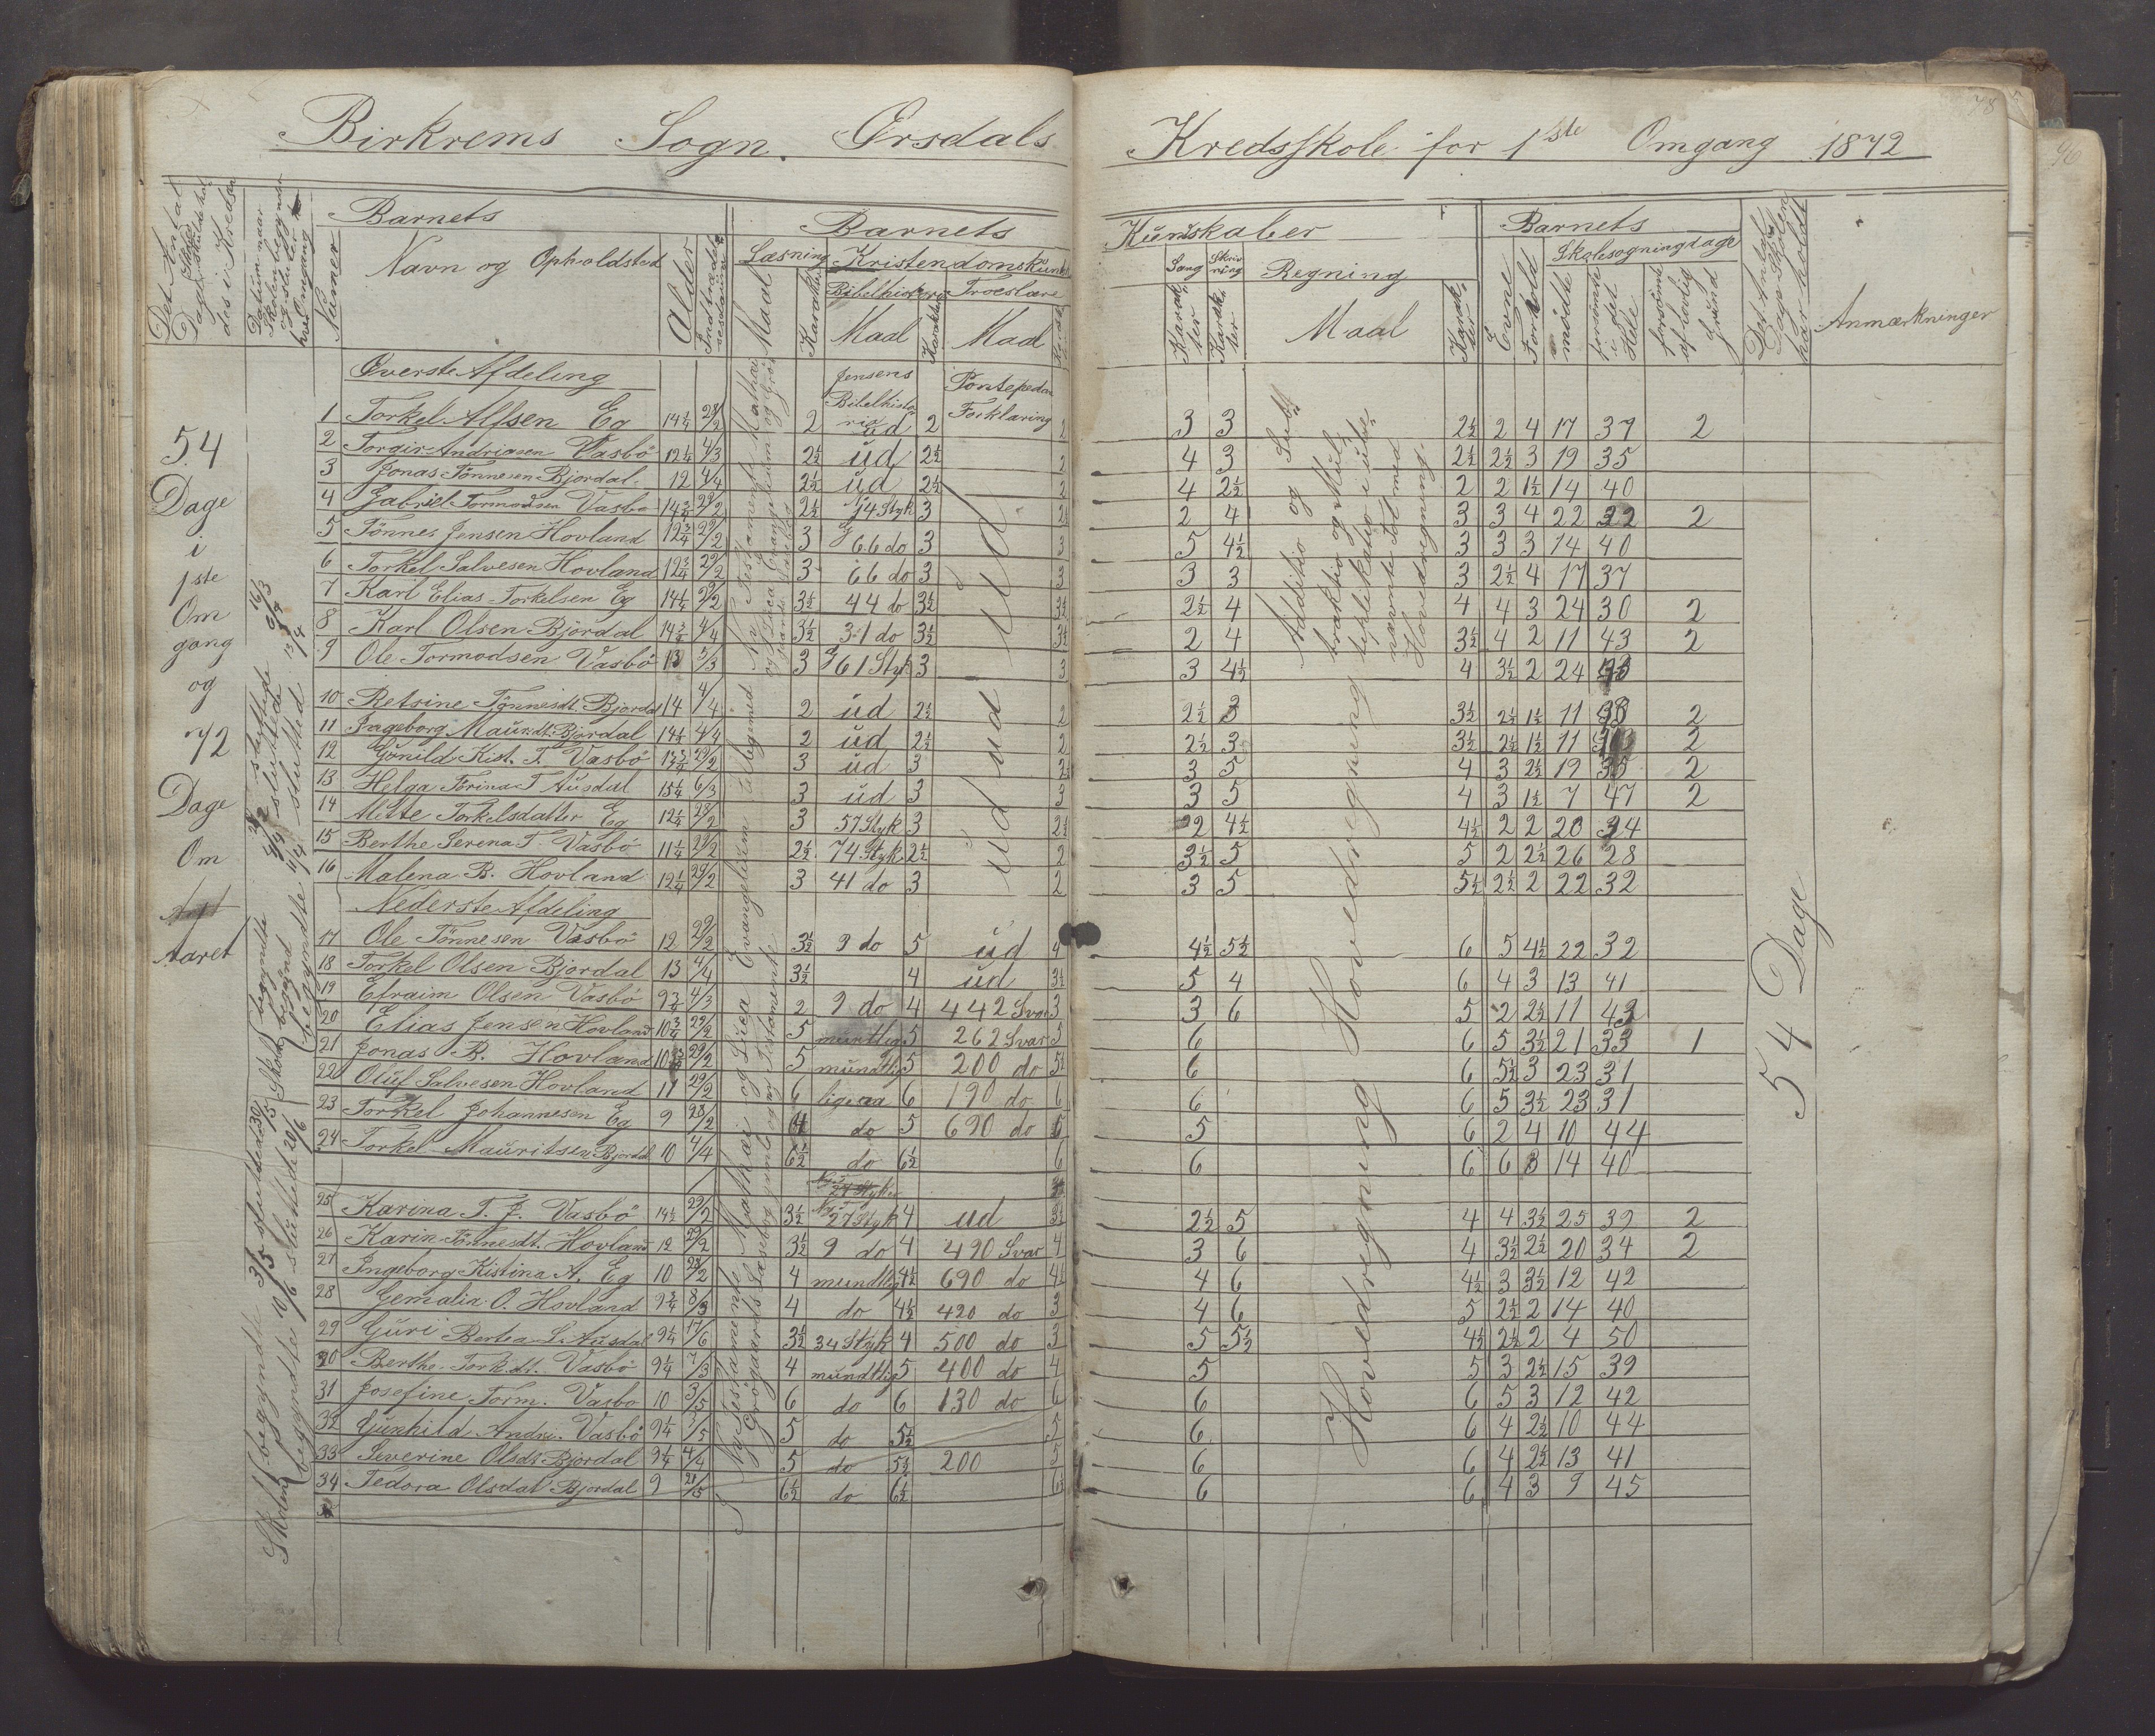 Birkrems Sogn. Örsdals Kredsskole for 1ste Omgang 1872
78
96
Det Antal Dage Skolen skulde holdes i Kredsen
Datum naar Skolen begyndte og sluttet hver Omgang
Numer
Barnets
Navn og Opholdsted
Alder
Indtrædelsesdatum
Barnets
Læsning
Maal
Karakter
Kristendomskundskab
Bibelhistorie
Maal
Karakter
Troeslære
Maal
Kundskaber
Sang
Karakter
Skrivning
Karakter
Regning
Maal
Karakter
Barnets
Evne
Forhold
Skolesøgningdage
mödte
forsömte i det Hele
forsömte af lovlig Grund
Det Antal Dage Skolen har holdt
Anmærkninger
54 Dage i 1ste Omgang og 72 Dage Om Aaret
Överste Afdeling
Jensens Bibelhistorie
Pontopedans Forklaring
1 Torkel Alfsen Eg 14¼ 28/2 2 ud 2 2 3 3 2½ 2 4 17 37 2
2 Torgir Andriasen Vasbö 12¼ 4/3 2½ ud 2½ 2 4 3 2½ 2½ 3 19 35
3 Jonas Tönnesen Bjordal 12 4/4 2½ ud 2½ 2 4 2½ 2 2 1½ 14 40
4 Gabriel Tormodsen Vasbo 14¾ 29/2 2½ 74 Styk 3 2½ 2 4 3 3 4 22 32 2
5 Tönnes Jensen Hovland 12¾ 29/2 3 66 do 3 3 5 4½ 3 3 3 14 40
6 Torkel Salvesen Hovland 12¾ 29/2 3 66 do 3 3 3 3 3 2½ 4 17 37
7 Karl Elias Torkelsen Eg 14¼ 29/2 3½ 44 do 3½ 3½ 2½ 4 4 4 3 24 30 2
8 Karl Olsen Björdal 14¾ 4/4 3½ 31 do 3½ 3½ 2 4 3½ 4 2 11 43 2
9 Ole Tormodsen Vasbö 13 5/3 3 61 Styk 3 3 3 4½ 4 3½ 2 24
10 Retsine Tönnesdt. Bjordal 14 4/4 2 ud 2½ 2 2½ 3 3½ 2½ 1½ 11 2
11 Ingeborg Maur.dt. Bjordal 14¼ 4/4 2 ud 2½ 2 2½ 3 3½ 2½ 1½ 11 2
12 Gunild Kist. T. Vasbö 13¾ 29/2 3 ud 3 2½ 3 5 4 3 2½ 19 35 2
13 Helga Torina T Ausdal 15¼ 6/3 3 ud 3 3 3 5 4 3 1½ 7 47 2
14 Mette Torkelsdatter Eg 12¼ 28/2 3 57 Styk 3 2½ 2 4½ 4½ 2 2 20 34
15 Berthe Serena T. Vasbö 11¼ 29/2 2½ 74 Styk 2½ 2 3½ 5 5 2 2½ 26 28
16 Malena B. Hovland 12¼ 29/2 3 41 do 3 2 3 5 5½ 2½ 2 22 32
Nederste Afdeling
17 Ole Tönnesen Vasbö 12 29/2 3½ 9 do 5 ud 4 4½ 5½ 6 5 4½ 22 32
18 Torkel Olsen Bjordal 13 4/4 3½ 4 ud 3½ 5 4 6 4 3 13 41
19 Efraim Olsen Vasbö 9¾ 4/3 2 9 do 4 442 Svar 3 3 6 5 2 2½ 11 43
20 Elias Jensen Hovland 10¾ 29/2 5 mundtlig 5 262 Svar 5 6 6 5 3½ 21 33 1
21 Jonas B. Hovland 10¾ 29/2 5 mundtlig 5 200 do 5½ 6 6 5½ 3 23 31
22 Oluf Salvesen Hovland 11 29/2 6 ligesaa 6 190 do 6 6 6 5 3½ 23 31
23 Torkel Johannesen Eg 9 28/2 4 do 5 690 do 5 6 2 4 10 44
24 Torkel Mauritsen Bjordal 10 4/4 6½ do 6½ 6 6 6 6 3 14 40
27 Styker
25 Karina T. J. Vasbö 14½ 29/2 3½ 27 Styk 4 ud 3½ 2½ 5 4 4 3½ 25 39 2
26 Karin Tönnesdt. Hovland 12 29/2 3½ 9 do 4 490 Svar 4 3 6 4 3½ 2½ 20 34 2
27 Ingeborg Kistina A. Eg 10 28/2 4 mundtlig 4½ 690 do 4½ 4 6 4½ 3 3½ 12 42
28 Gemalia O. Hovland 9¾ 8/3 4 do 4½ 420 do 3 4 6 5 2½ 2 14 40
29 Guri Bertea L. Ausdal 9¼ 17/6 3½ 34 Styk 4 500 do 3 5 5½ 4½ 2½ 2 4 50
30 Berthe Tork.dt. Vasbö 9¼ 7/3 4 mundtlig 5 400 do 4 5 5 3 2½ 15 39
31 Josefine Torm. Vasbo 10 3/5 6 do 6 130 do 6 6 6 5 3 12 42
32 Gunhild Andri. Vasbö 9¼ 3/5 5 do 5½ 5 6 6 4 2½ 10 44
33 Severine Olsdt Bjordal 9¼ 4/4 5 do 5½ 200 5 6 6 4 2½ 13 41
34 Tedora Olsdat Bjordal 9 21/5 6½ do 6½ 6½ 6 6 4 3 9 45
ud
ud
Additio og Subtraktio og Multiplikatio i ubenævnte Tal med Hovedregning.
Hovedregning
Hovedregning
Hovedregning
54 Dage